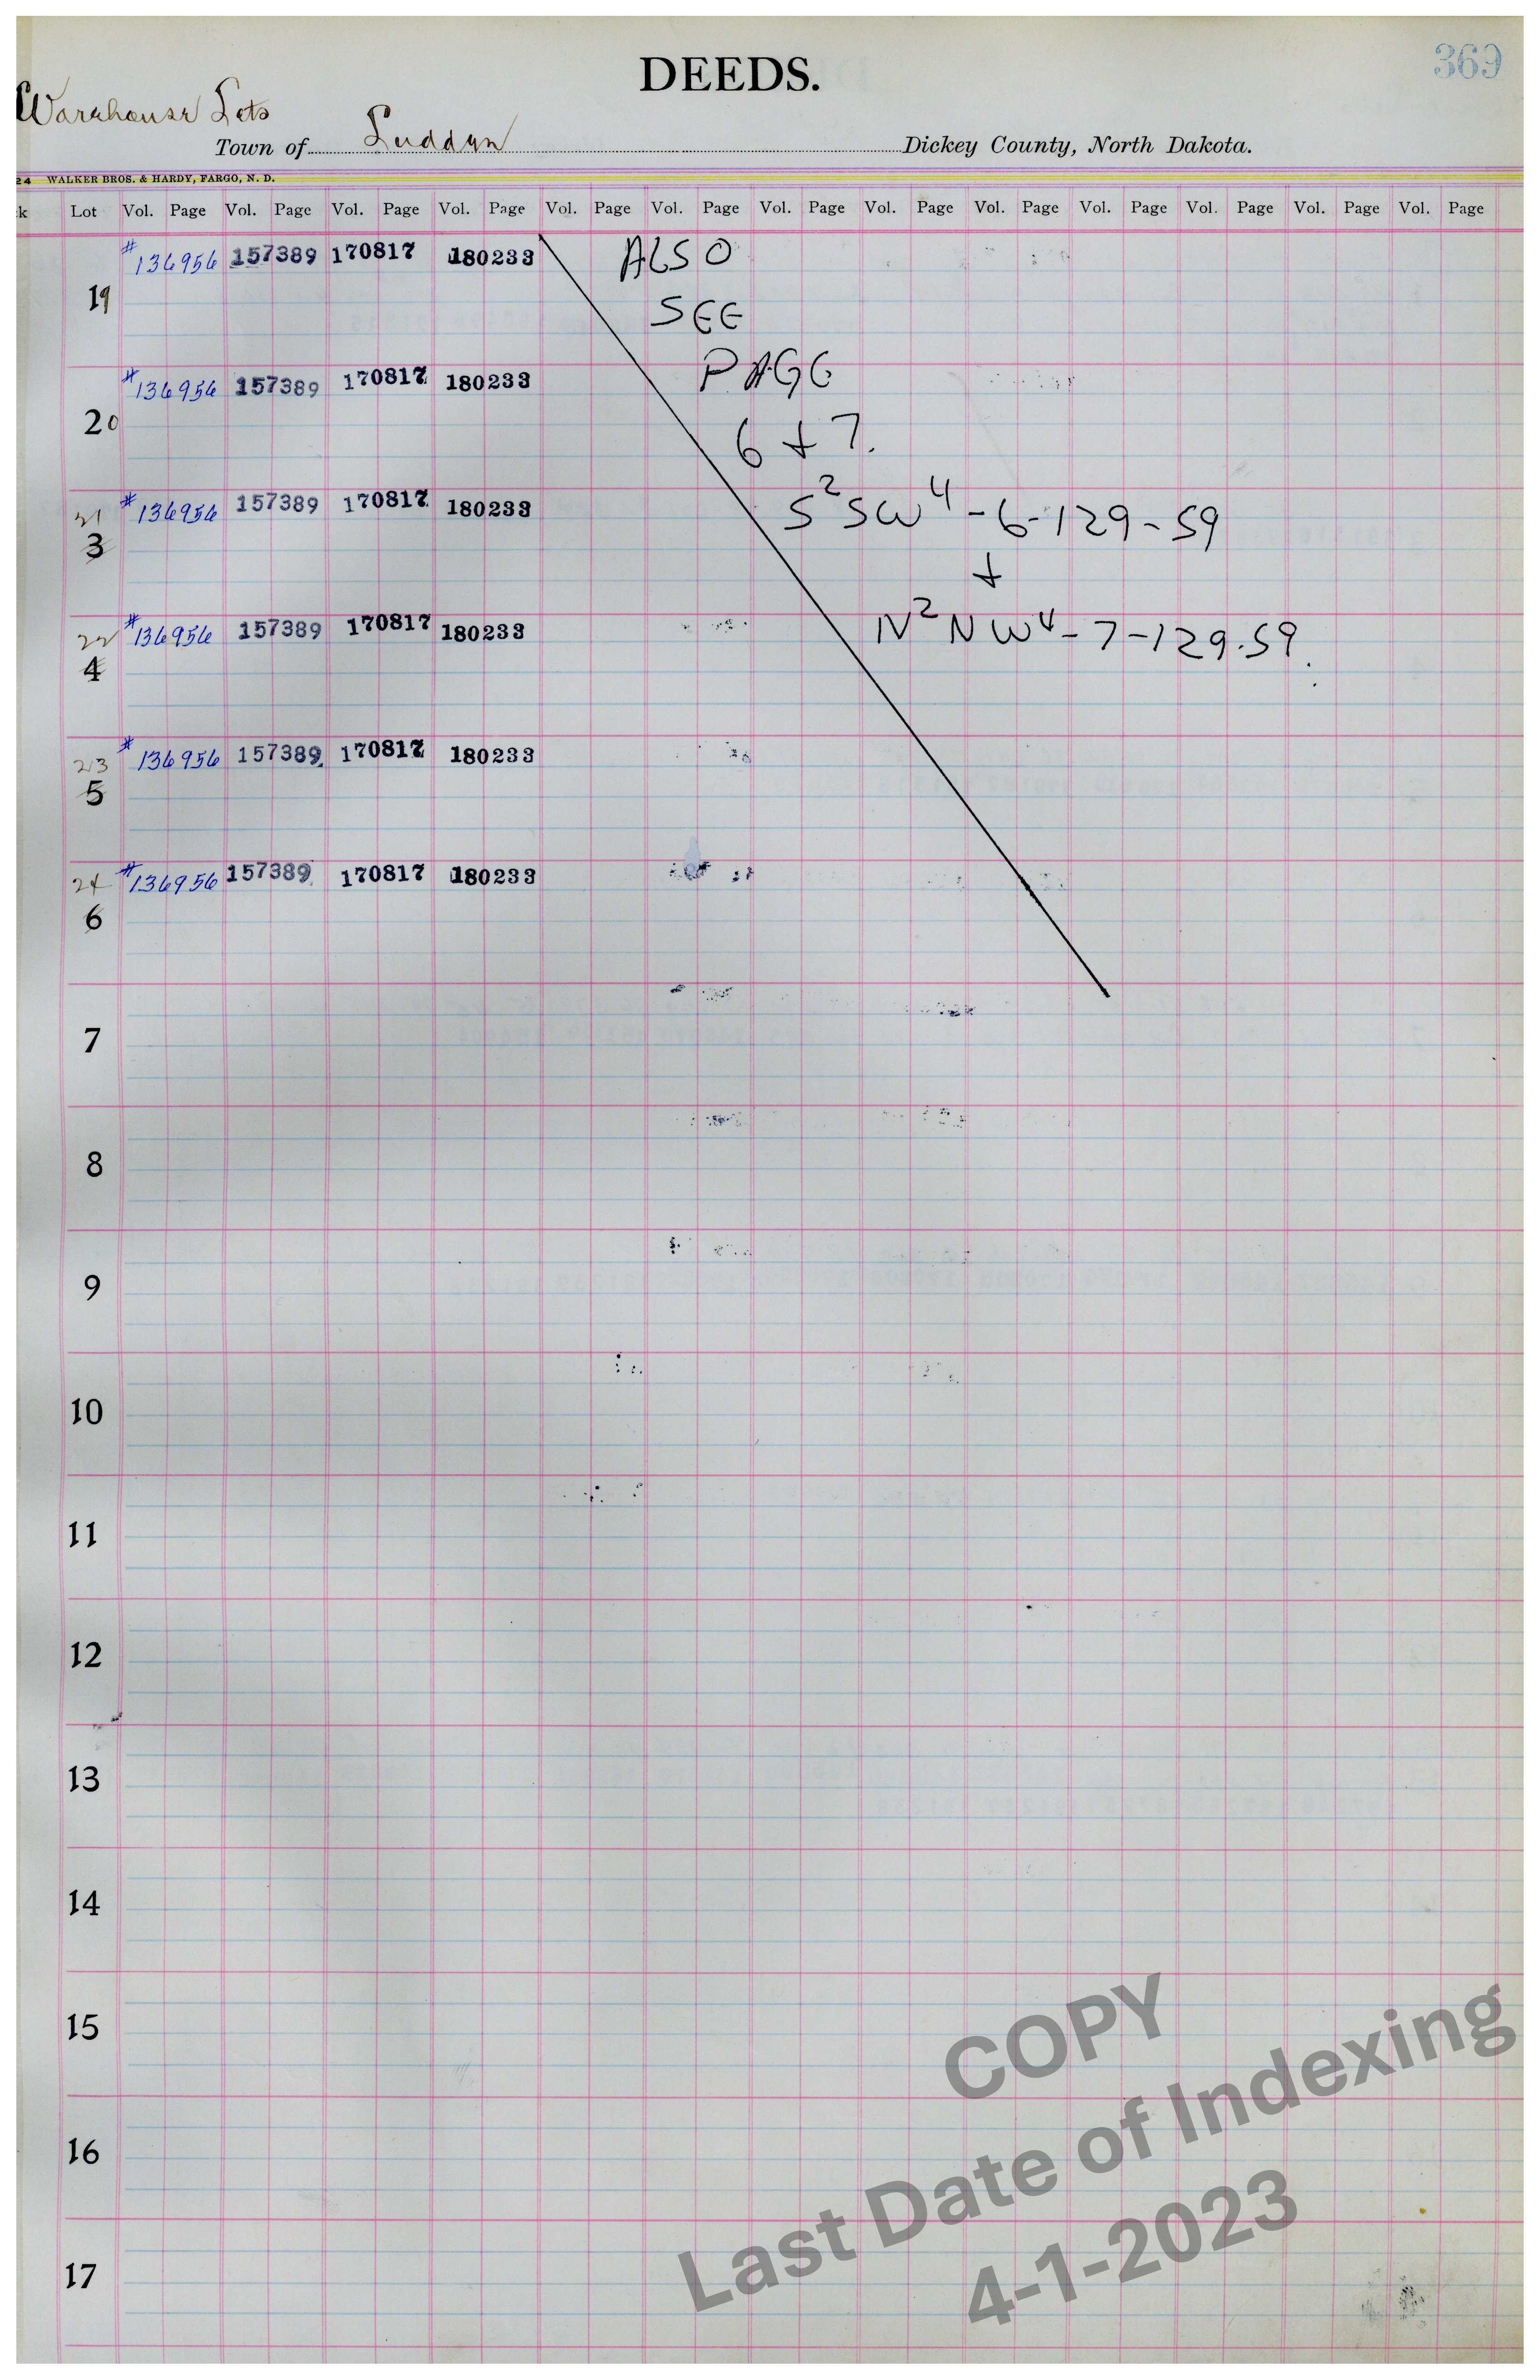 369
DEEDS.
Warehouse Lots
Town of Ludden Dickey County, North Dakota.
24 WALKER BROS. & HARDY, FARGO, N. D.
k Lot Vol. Page Vol. Page Vol. Page Vol. Page Vol. Page Vol. Page Vol. Page Vol. Page Vol. Page Vol. Page Vol. Page Vol. Page Vol. Page
#136956 157389 170817 180233 ALSO
19 SEE
#136956 157389 170817 180233 PAGE
20 6 + 7.
21 #136956 157389 170817 180233 S2SW4-6-129-59
3
+
22 #136956 157389 170817 180233 N2NW4-7-129-59.
4
23 #136956 157389 170817 180233
5
24 #136956 157389 170817 180233
6
7
8
9
10
11
12
13
14
15
16
17
COPY
Last Date of Indexing
4-1-2023